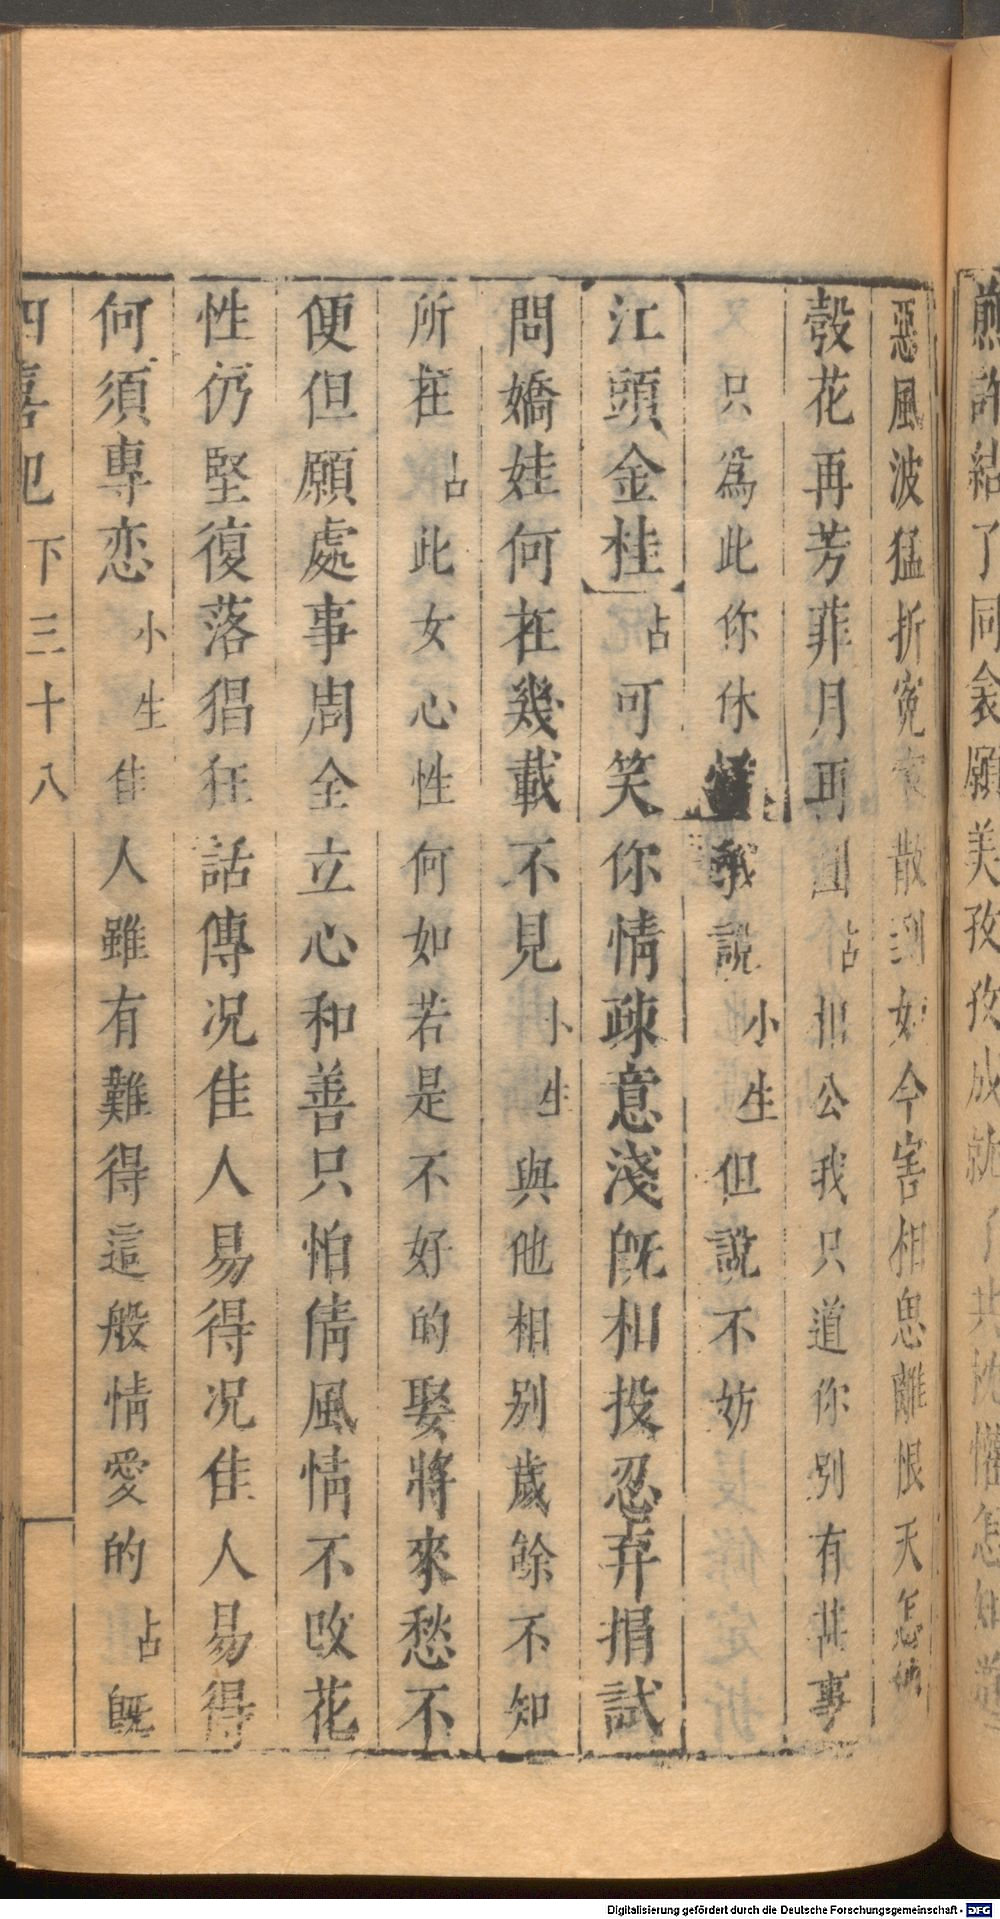 煎許結了同衾願美孜孜成就了共
惡風波猛折寃家散到如今害相思離恨天怎
彀花再芳菲月再圓占相公我只道你別有甚事
只為此你休
說小生但說不妨
江頭金桂占可笑你情疎意淺旣相投忍弃捐試
問嬌娃何在幾載不見小生與他相別歲餘不知
所在占此女心性何如若是不好的娶將來愁不
便但願處事周全立心和善只怕倩風情不改花
性仍堅復落猖狂話傳况佳人易得况佳人易得
何須專恋小生佳人雖有難得這般情愛的占旣
四喜記下三十八
Digitalisierung gefördert durch die Deutsche Forschungsgemeinschaft - DFG